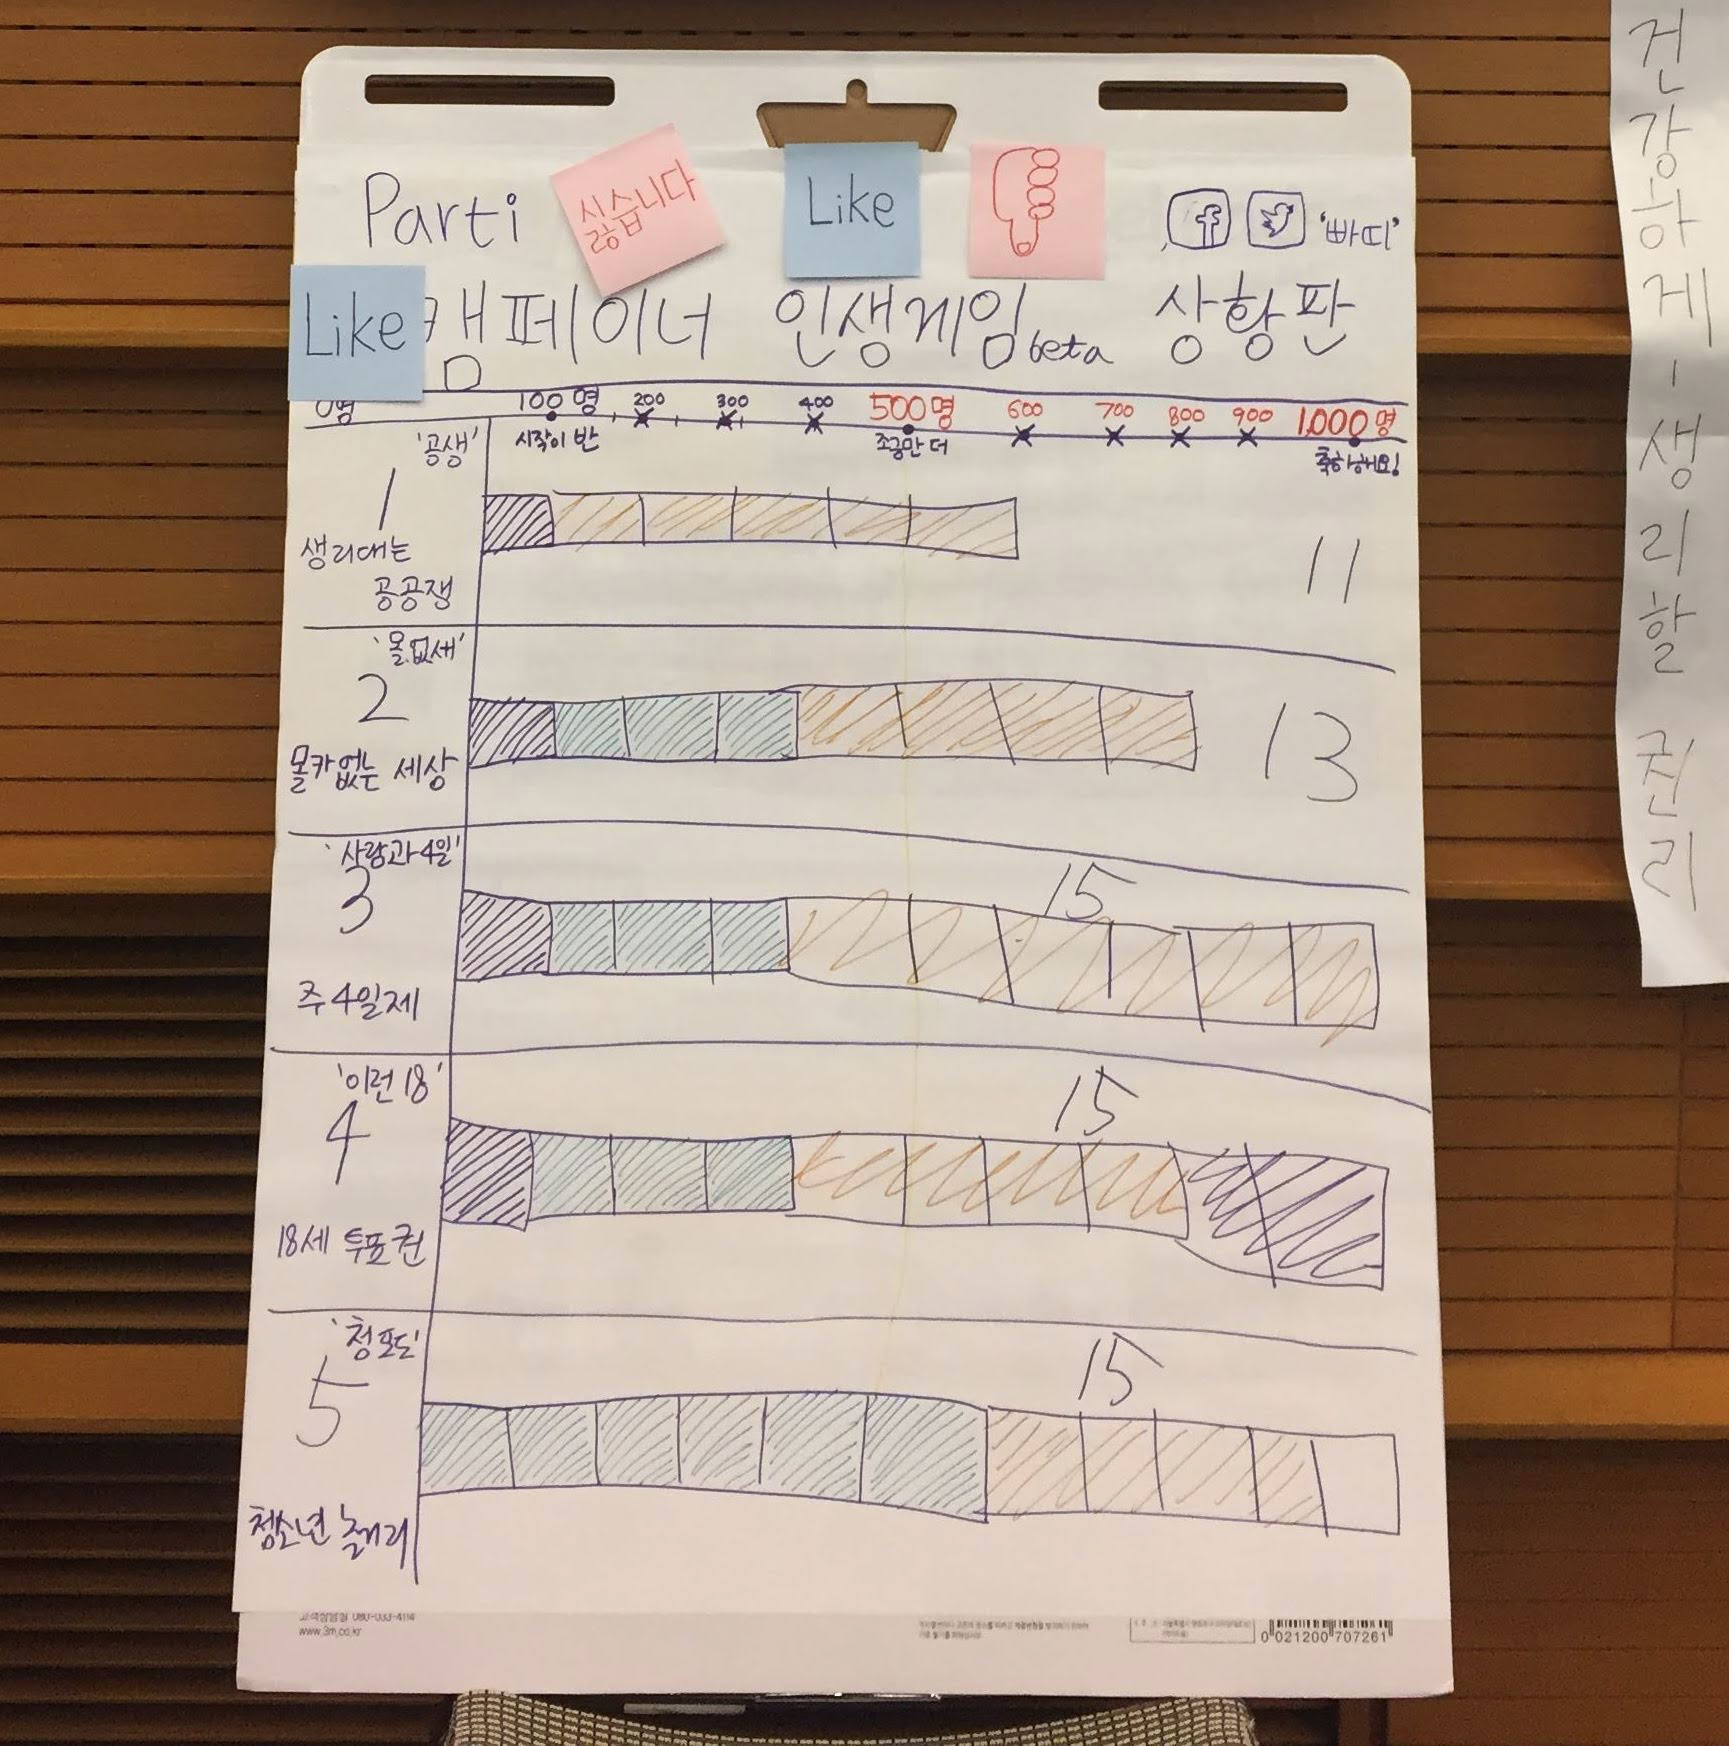 Parti
싫습니다
Like
'빠띠'
Like
캠페이너 인생게임 beta 상황판
0명 100명 200 300 400 500명 600 700 800 900 1,000명
시작이 반 조금만 더 축하해요!
'공생'
1
생리대는
공공쟁
11
'몰.없세'
2
몰카없는 세상
13
'사랑과 4일'
3
주4일제
15
'이런 18'
4
18세 투표권
15
'청포도'
5
청소년 놀거리
15
080-033-4114
www.3m.co.kr
0 021200 707261
건강하게 생리할 권리